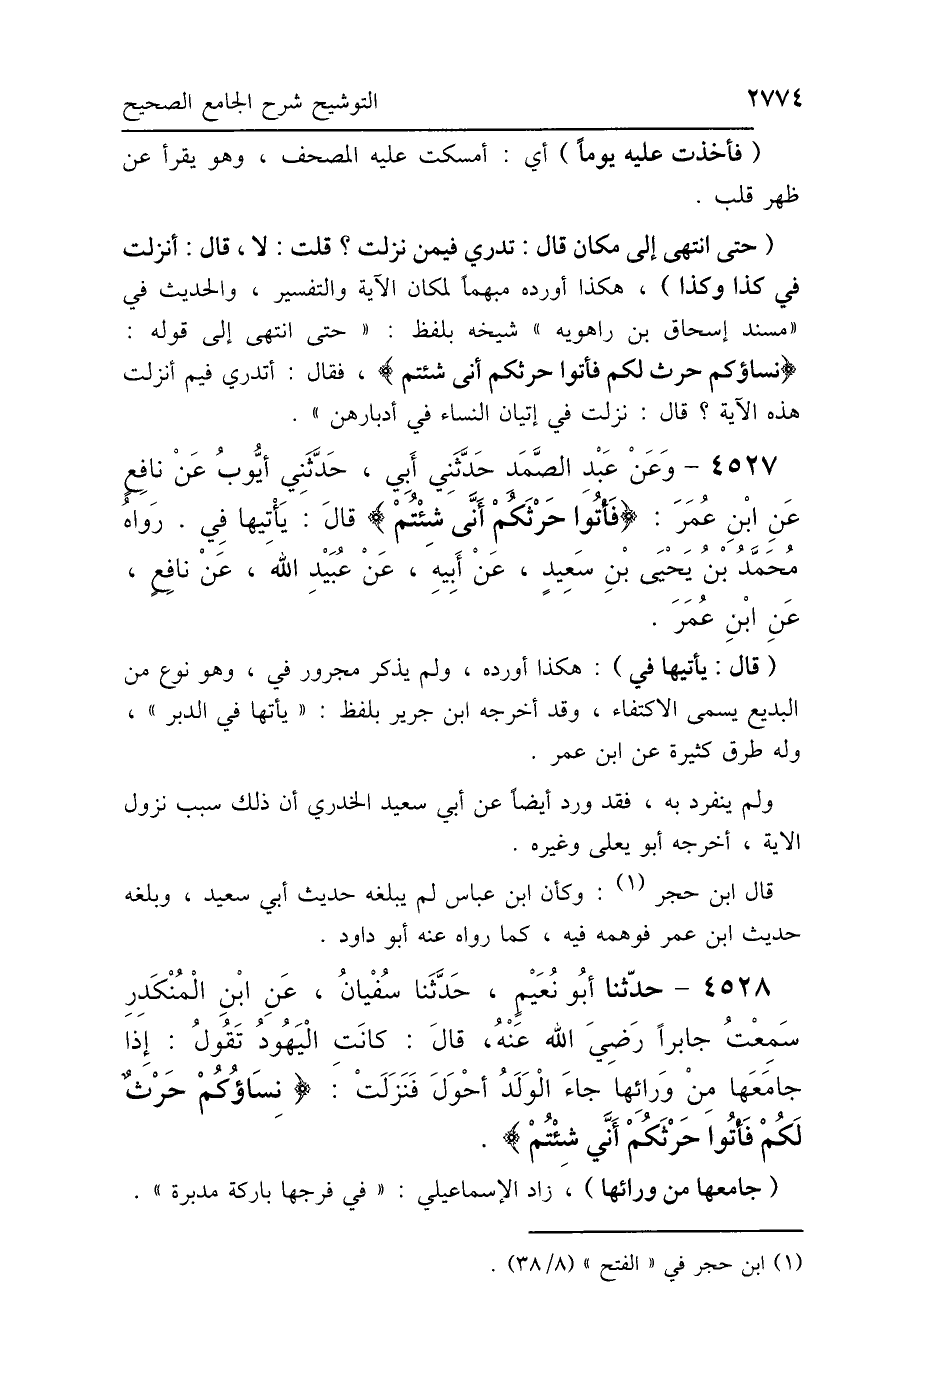 ٢٧٧٤ التوشيح شرح الجامع الصحيح
( فأخذت عليه يوماً ) أي : أمسكت عليه المصحف ، وهو يقرأ عن
ظهر قلب .
( حتى انتهى إلى مكان قال : تدري فيمن نزلت ؟ قلت : لا ، قال : أنزلت
في كذا وكذا ) ، هكذا أورده مبهماً لمكان الآية والتفسير ، والحديث في
«مسند إسحاق بن راهويه » شيخه بلفظ : « حتى انتهى إلى قوله :
﴿نساؤكم حرث لكم فأتوا حرثكم أنى شئتم ﴾ ، فقال : أتدري فيم أنزلت
هذه الآية ؟ قال : نزلت في إتيان النساء في أدبارهن » .
٤٥٢٧ - وَعَنْ عَبْدِ الصَّمَدِ حَدَّثَنِي أَبِي ، حَدَّثَنِي أَيُّوبُ عَنْ نافِعٍ
عَنِ ابْنِ عُمَرَ : ﴿فَأْتُوا حَرْثَكُمْ أَنَّى شِئْتُمْ ﴾ قالَ : يَأْتِيها فِي . رَواهُ
مُحَمَّدُ بْنُ يَحْيَى بْنِ سَعِيدٍ ، عَنْ أَبِيهِ ، عَنْ عُبَيْدِ الله ، عَنْ نافِعٍ ،
عَنِ ابْنِ عُمَرَ .
( قال : يأتيها في ) : هكذا أورده ، ولم يذكر مجرور في ، وهو نوع من
البديع يسمى الاكتفاء ، وقد أخرجه ابن جرير بلفظ : « يأتها في الدبر » ،
وله طرق كثيرة عن ابن عمر .
ولم ينفرد به ، فقد ورد أيضاً عن أبي سعيد الخدري أن ذلك سبب نزول
الاية ، أخرجه أبو يعلى وغيره .
قال ابن حجر (١) : وكأن ابن عباس لم يبلغه حديث أبي سعيد ، وبلغه
حديث ابن عمر فوهمه فيه ، كما رواه عنه أبو داود .
٤٥٢٨ - حدّثنا أَبُو نُعَيْمٍ ، حَدَّثَنا سُفْيانُ ، عَنِ ابْنِ الْمُنْكَدِرِ
سَمِعْتُ جابراً رَضِيَ الله عَنْهُ، قالَ : كانَتِ الْيَهُودُ تَقُولُ : إِذا
جامَعَها مِنْ وَرائِها جاءَ الْوَلَدُ أَحْوَلَ فَنَزَلَتْ : ﴿ نِساؤُكُمْ حَرْثٌ
لَكُمْ فَأْتُوا حَرْثَكُمْ أَنَّي شِئْتُمْ ﴾ .
( جامعها من ورائها ) ، زاد الإسماعيلي : « في فرجها باركة مدبرة » .
(١) ابن حجر في « الفتح » (٣٨/٨) .